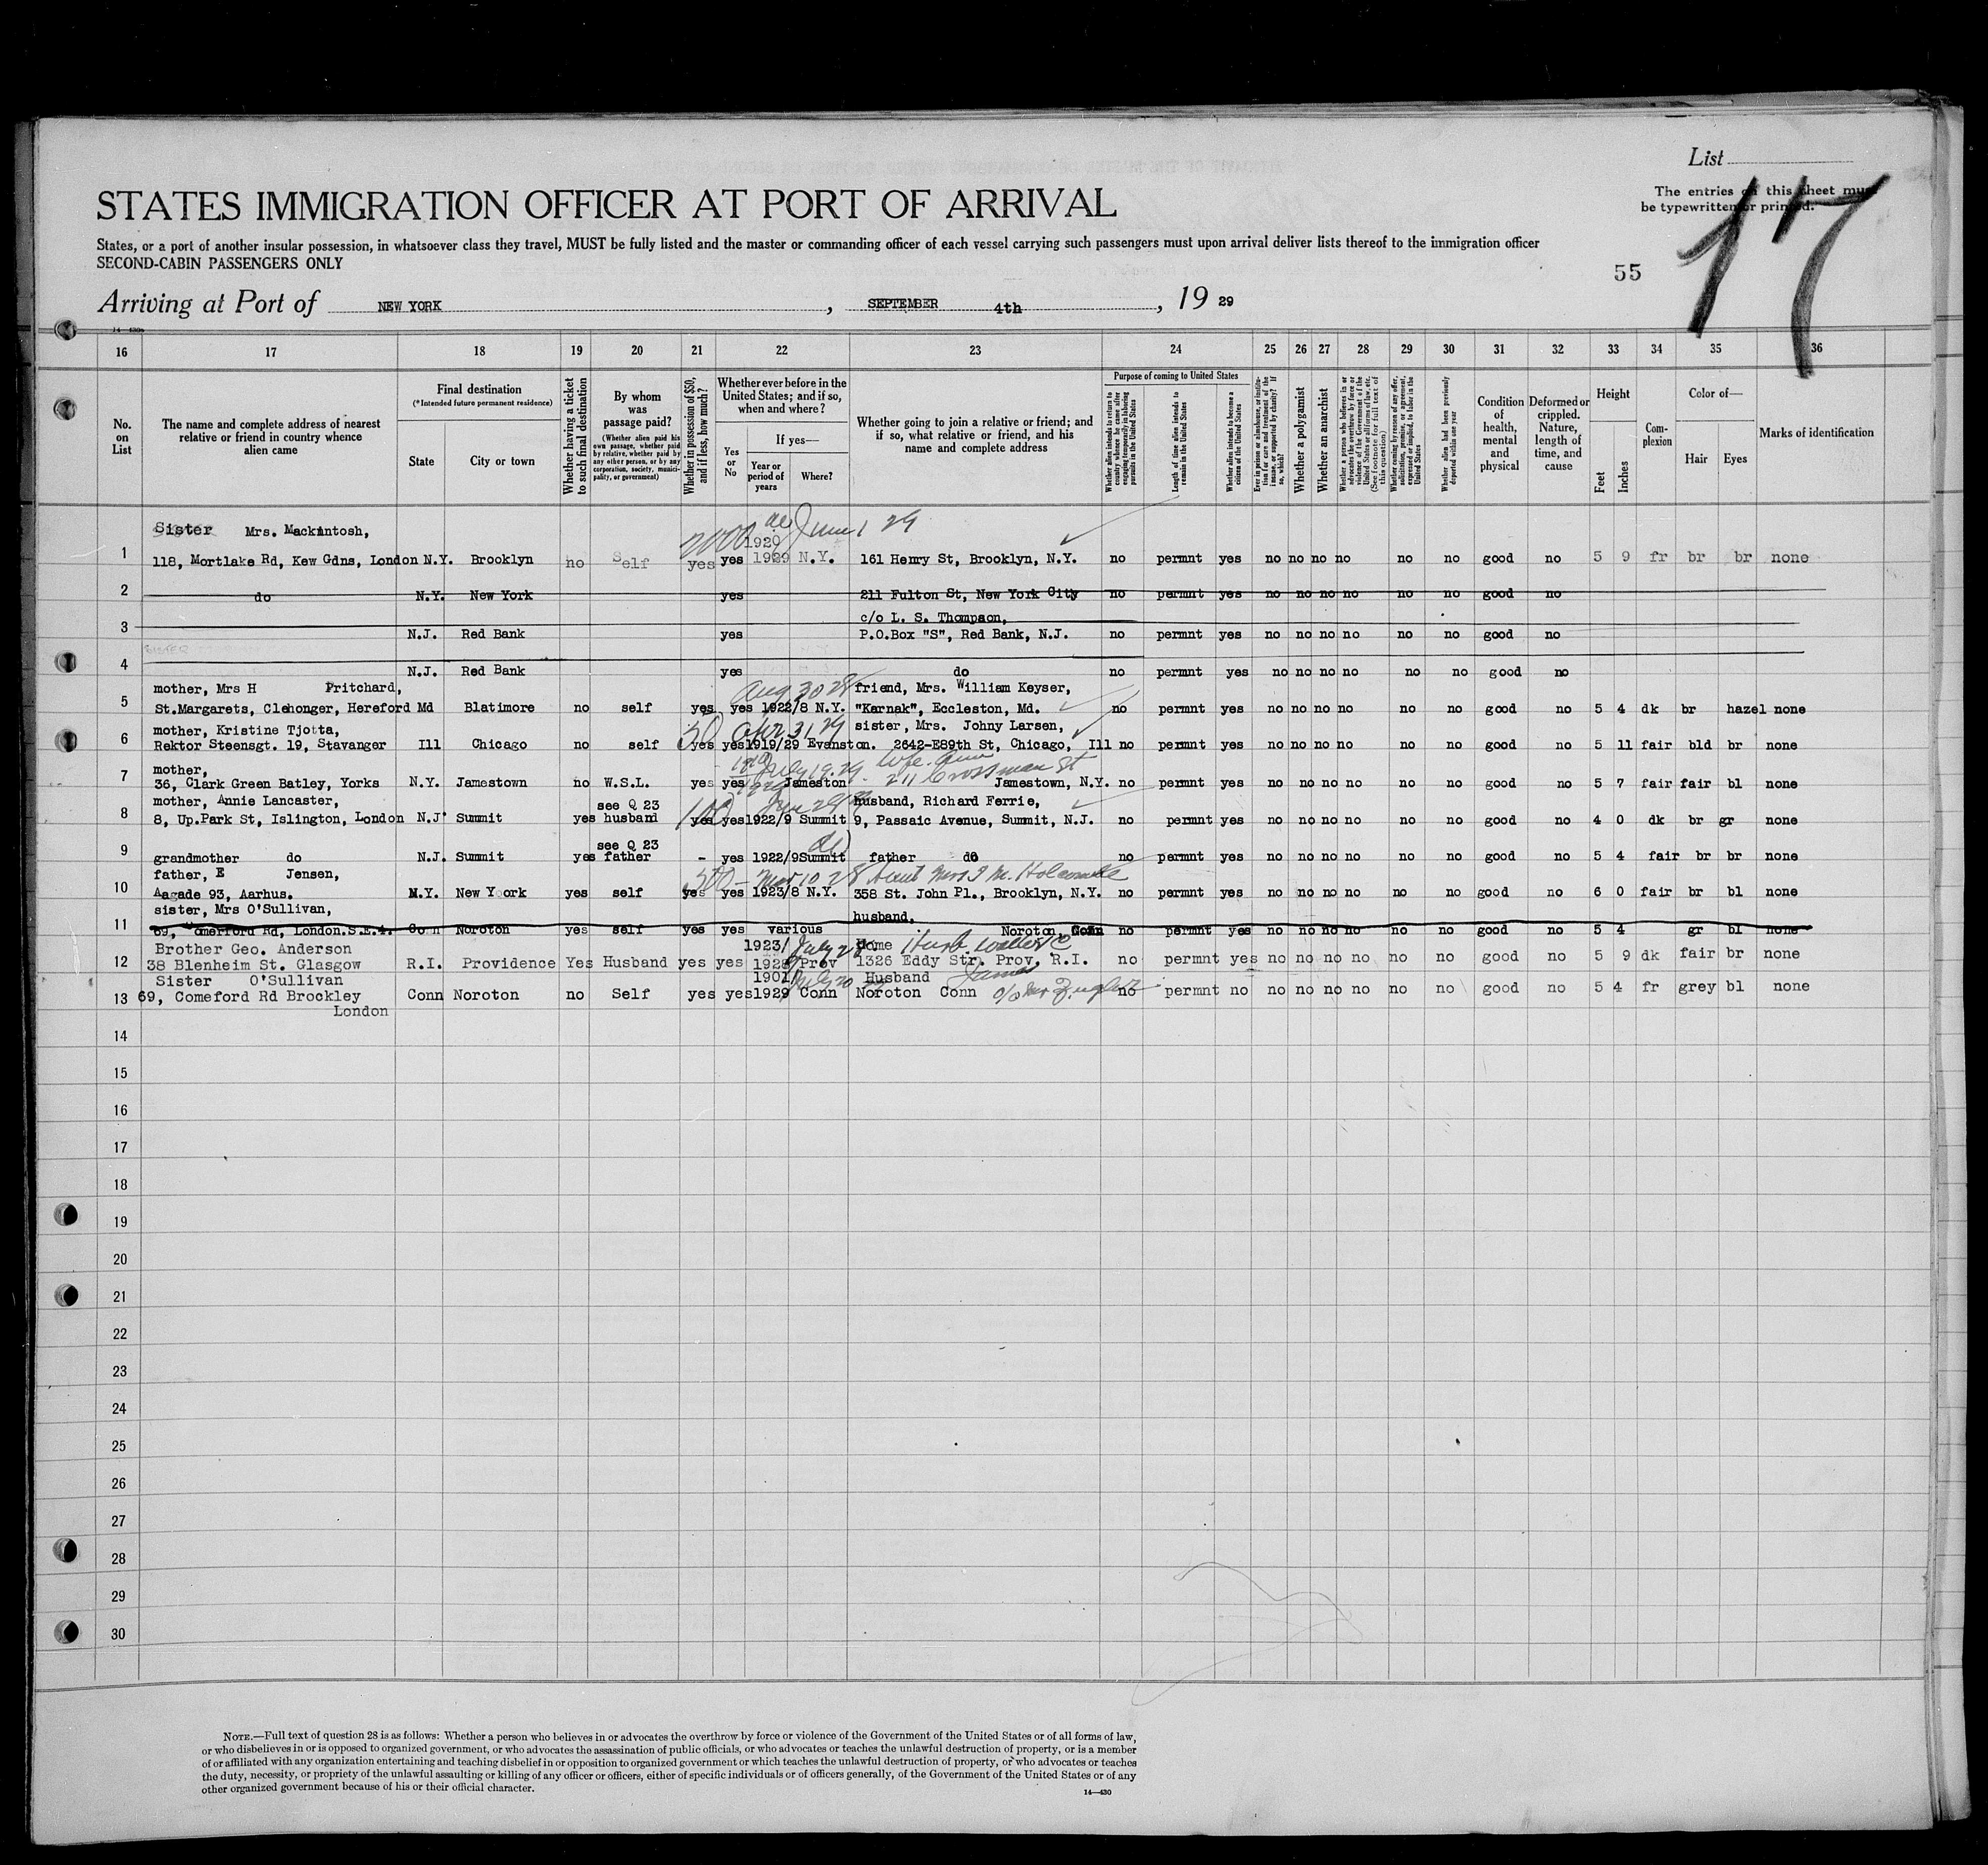 List
The entries on this sheet must
be typewritten or printed.
17
55
STATES IMMIGRATION OFFICER AT PORT OF ARRIVAL
States, or a port of another insular possession, in whatsoever class they travel, MUST be fully listed and the master or commanding officer of each vessel carrying such passengers must upon arrival deliver lists thereof to the immigration officer
SECOND-CABIN PASSENGERS ONLY
Arriving at Port of NEW YORK, SEPTEMBER 4th, 19 29
16 17 18 19 20 21 22 23 24 25 26 27 28 29 30 31 32 33 34 35 36
No. on List
The name and complete address of nearest relative or friend in country whence alien came
Final destination
(*Intended future permanent residence)
State
City or town
Whether having a ticket to such final destination
By whom was passage paid?
(Whether alien paid his own passage, whether paid by relative, whether paid by any other person, or by any corporation, society, municipality, or government)
Whether in possession of $50, and if less, how much?
Whether ever before in the United States; and if so, when and where?
Yes or No
If yes—
Year or period of years
Where?
Whether going to join a relative or friend; and if so, what relative or friend, and his name and complete address
Purpose of coming to United States
Whether alien intends to return to country whence he came after engaging temporarily in laboring pursuits in the United States
Length of time alien intends to remain in the United States
Whether alien intends to become a citizen of the United States
Ever in prison or almshouse, or institution for care and treatment of the insane, or supported by charity? If so, which?
Whether a polygamist
Whether an anarchist
Whether a person who believes in or advocates the overthrow by force or violence of the Government of the United States or all forms of law, etc. (See footnote for full text of this question)
Whether coming by reason of any offer, solicitation, promise, or agreement, expressed or implied, to labor in the United States
Whether alien had been previously deported within one year
Condition of health, mental and physical
Deformed or crippled. Nature, length of time, and cause
Height
Feet
Inches
Complexion
Color of—
Hair
Eyes
Marks of identification
Sister Mrs. Mackintosh, 2000 June 1 29
1920
1 118, Mortlake Rd, Kew Gdns, London N.Y. Brooklyn no Self yes yes 1929 N.Y. 161 Henry St, Brooklyn, N.Y. no permnt yes no no no no no no good no 5 9 fr br br none
2 do N.Y. New York yes 211 Fulton St, New York City no permnt yes no no no no no no good no
c/o L. S. Thompson,
3 N.J. Red Bank yes P.O.Box "S", Red Bank, N.J. no permnt yes no no no no no no good no
4 N.J. Red Bank yes do no permnt yes no no no no no no good no
mother, Mrs H Pritchard, Aug 30 28 friend, Mrs. William Keyser,
5 St.Margarets, Clehonger, Hereford Md Blatimore no self yes yes 1922/8 N.Y. "Karnak", Eccleston, Md. no permnt yes no no no no no no good no 5 4 dk br hazel none
mother, Kristine Tjotta, 50 sister, Mrs. Johny Larsen,
6 Rektor Steensgt. 19, Stavanger Ill Chicago no self yes yes 1919/29 Evanston. 2642-E89th St, Chicago, Ill no permnt yes no no no no no no good no 5 11 fair bld br none
mother, July 19.29. Wife. 211 Crossman St
7 36, Clark Green Batley, Yorks N.Y. Jamestown no W.S.L. yes yes Jameston Jamestown, N.Y. no permnt yes no no no no no no good no 5 7 fair fair bl none
mother, Annie Lancaster, see Q 23 100 husband, Richard Ferrie,
8 8, Up.Park St, Islington, London N.J. Summit yes husband yes yes 1922/9 Summit 9, Passaic Avenue, Summit, N.J. no permnt yes no no no no no no good no 4 0 dk br gr none
see Q 23 do
9 grandmother do N.J. Summit yes father - yes 1922/9 Summit father do no permnt yes no no no no no no good no 5 4 fair br br none
father, E Jensen, 300 - Mar 10 28 Aunt Mrs
10 Aagade 93, Aarhus. N.Y. New York yes self yes yes 1923/8 N.Y. 358 St. John Pl., Brooklyn, N.Y. no permnt yes no no no no no no good no 6 0 fair br bl none
sister, Mrs O'Sullivan, husband,
11 69, Comerford Rd, London.S.E.4. Conn Noroton yes self yes yes various Noroton, Conn no permnt yes no no no no no no good no 5 4 gr bl none
Brother Geo. Anderson 1923/ July Home Husb.
12 38 Blenheim St. Glasgow R.I. Providence Yes Husband yes yes Prov 1326 Eddy Str. Prov. R.I. no permnt yes no no no no no no good no 5 9 dk fair br none
Sister O'Sullivan 1901/ July 20 Husband James
13 69, Comeford Rd Brockley Conn Noroton no Self yes yes 1929 Conn Noroton Conn c/o Mr no permnt no no no no no no no good no 5 4 fr grey bl none
London
14
15
16
17
18
19
20
21
22
23
24
25
26
27
28
29
30
NOTE.—Full text of question 28 is as follows: Whether a person who believes in or advocates the overthrow by force or violence of the Government of the United States or of all forms of law,
or who disbelieves in or is opposed to organized government, or who advocates the assassination of public officials, or who advocates or teaches the unlawful destruction of property, or is a member
of or affiliated with any organization entertaining and teaching disbelief in or opposition to organized government or which teaches the unlawful destruction of property, or who advocates or teaches
the duty, necessity, or propriety of the unlawful assaulting or killing of any officer or officers, either of specific individuals or of officers generally, of the Government of the United States or of any
other organized government because of his or their official character.
14—430